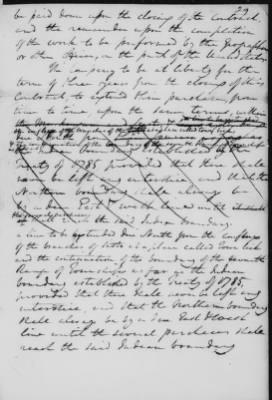 29
be paid down upon the closing of the contract
and the remainder upon the completion
of the work to be performed by the Geographer
or other Officer, on the part of the United States
The company to be at liberty for the
term of three years from the closing of this
Contract to extend their purchase from
time to time upon the same terms, within
Treaty of 1785 provided that there shall
never be left any interstice, and that the
Northern boundary shall always be
by a due East & West line until
the said Indian boundary
a line to be extended due North from the confluence
of the branches of Scioto at a place called Town lick
and the continuation of the boundary of the seventh
Range of Townships as far as the Indian
boundary established by the treaty of 1785,
provided that there shall never be left any
interstice, and that the Northern boundary
shall always be by a due East & West
line until the several purchases shall
reach the said Indian boundary